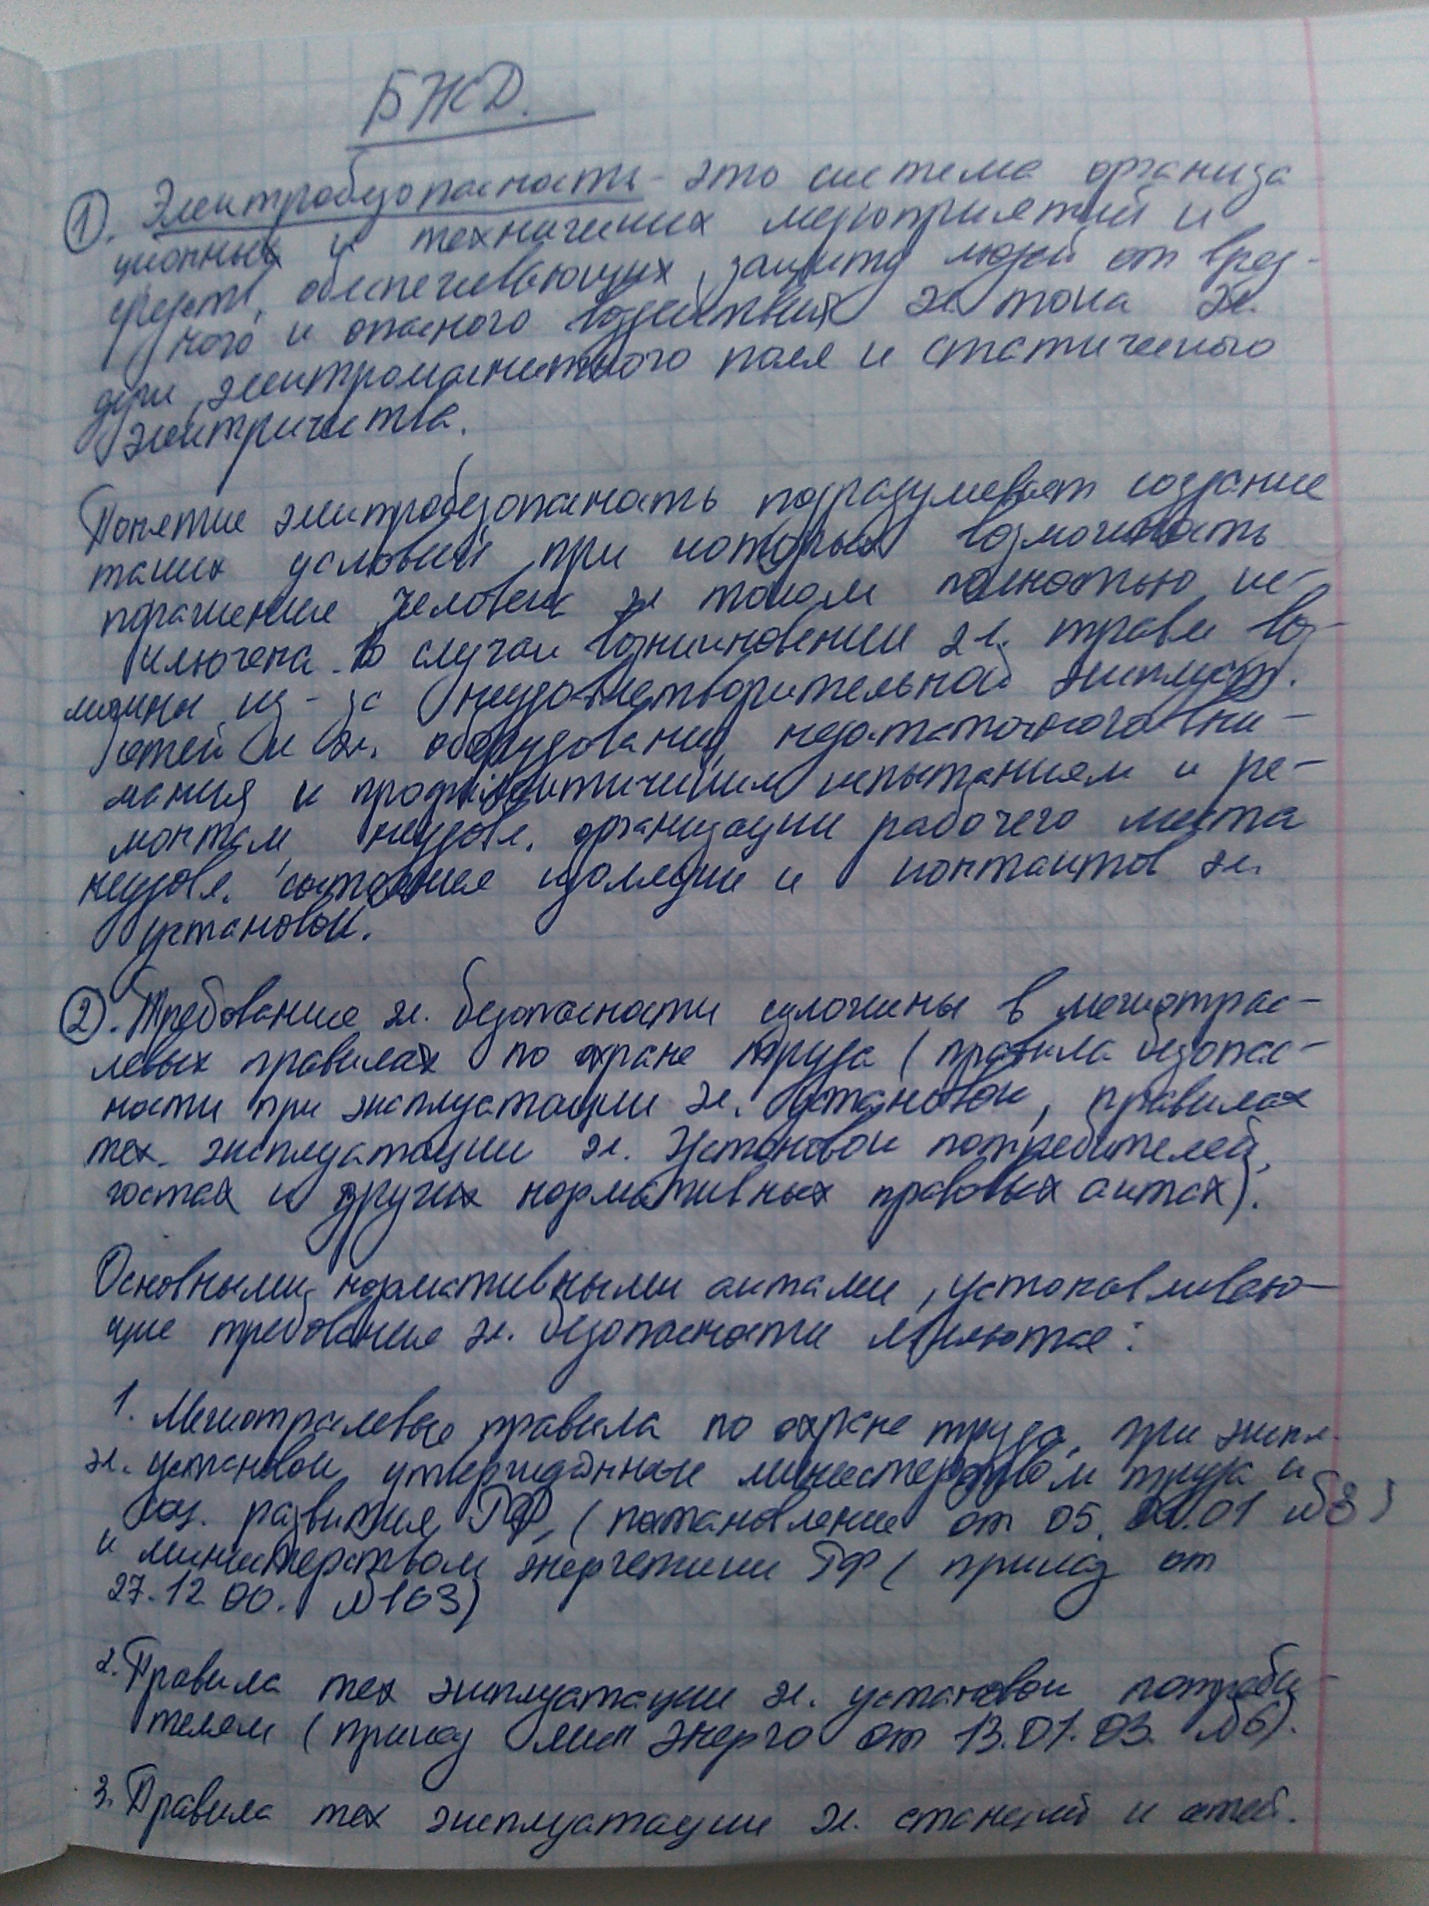 БЖД.
1). Электробезопасность - это система организа
ционных и технических мероприятий и
средств, обеспечивающих, защиту людей от вред-
ного и опасного воздействия эл тока эл.
дуги, электромагнитного поля и статического
электричества.
Понятие электробезопасность подразумевает создание
таких условий при которых возможность
поражения человека эл током полностью ис-
ключена. В случаи возникновении эл. травм воз-
можны из-за неудовлетворительной эксплуат.
сетей и эл. оборудования, недостаточного вни-
мания к профилактическим испытаниям и ре-
монтам, неудовл. организации рабочего места
неудовл. состояния изоляции и контактов эл.
установок.
2). Требование эл. безопасности изложены в межотрас-
левых правилах по охране труда (правила безопас-
ности при эксплуатации эл. установок, правилах
тех. эксплуатации эл. установок потребителей,
гостах и других нормативных правовых актах).
Основными нормативными актами, устанавливаю-
щие требования эл. безопасности являются:
1. Межотраслевые правила по охране труда, при экспл.
эл. установок, утвержденные министерством труда и
соц. развития РФ, (постановление от 05.01.01 №3)
и министерством энергетики РФ (приказ от
27.12.00. №163)
2. Правила тех эксплуатации эл. установок потреби-
телем (приказ мин энерго от 13.01.03. №6).
3. Правила тех эксплуатации эл. станций и сетей.